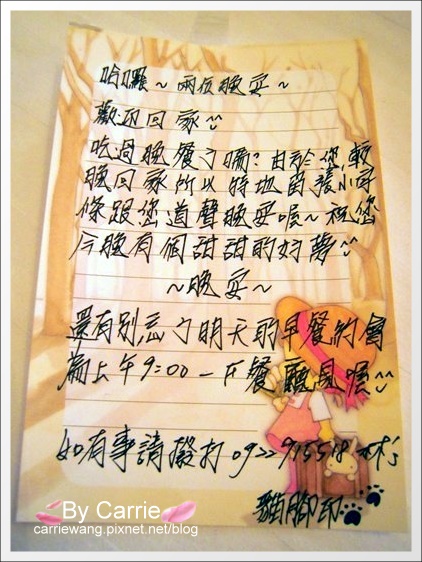 哈囉～兩位晚安～
歡迎回家
吃過晚餐了嗎？由於您較
晚回家所以特地留張小字
條跟您道聲晚安喔～祝您
今晚有個甜甜的好夢
～晚安～
還有別忘了明天的早餐約會
上午9:00一F餐廳見喔
如有事請撥打0922915518 林's
貓腳印
By Carrie
carriewang.pixnet.net/blog